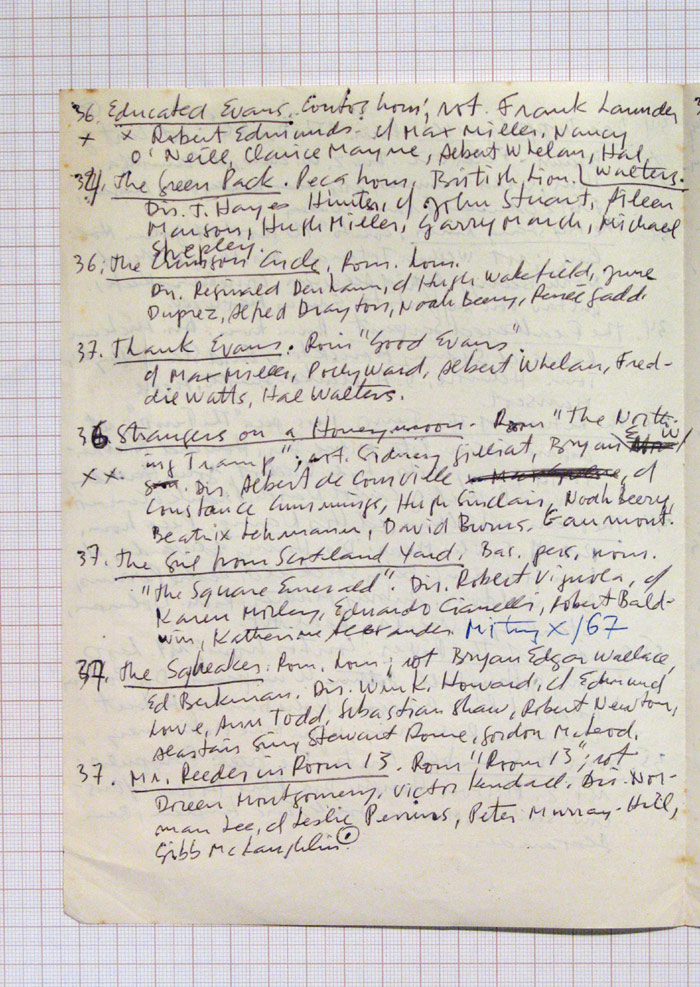 36. Educated Evans. Contos hom., rot. Frank Launder
x x Robert Edmunds. c/ Max Miller, Nancy
O'Neill, Clarice Mayne, Albert Whelan, Hal
Walters.
34. The Green Pack. Peca hom., British Lion.
Dir. T. Hayes Hunter, c/ John Stuart, Aileen
Marson, Hugh Miller, Garry Marsh, Michael
Shepley.
36. The Crimson Circle, Rom. hom.
Dir. Reginald Denham, c/ Hugh Wakefield, June
Duprez, Alfred Drayton, Noah Beery, Renée Gadd.
37. Thank Evans. Rom "Good Evans".
c/ Max Miller, Polly Ward, Albert Whelan, Fred-
die Watts, Hal Walters.
36 Strangers on a Honeymoon. Rom "The North-
ing Tramp"; rot. Sidney Gilliat, Bryan E. W/
x x. Dir. Albert de Courville, c/
Constance Cummings, Hugh Sinclair, Noah Beery,
Beatrix Lehmann, David Burns. Gaumont.
37. The Girl from Scotland Yard. Bas. pers. rom.
"The Square Emerald". Dir. Robert Vignola, c/
Karen Morley, Eduardo Cianelli, Robert Bald-
win, Katherine Alexander X/67
37. The Squeaker. Rom. hom.; rot Bryan Edgar Wallace,
Ed Berkman. Dir. Wm K. Howard, c/ Edmund
Lowe, Ann Todd, Sebastian Shaw, Robert Newton,
Alastair Sim, Stewart Rome, Gordon McLeod.
37. Mr. Reeder in Room 13. Rom "Room 13"; rot
Doreen Montgomery, Victor Kendall. Dir. Nor-
man Lee, c/ Leslie Perrins, Peter Murray-Hill,
Gibb McLaughlin.